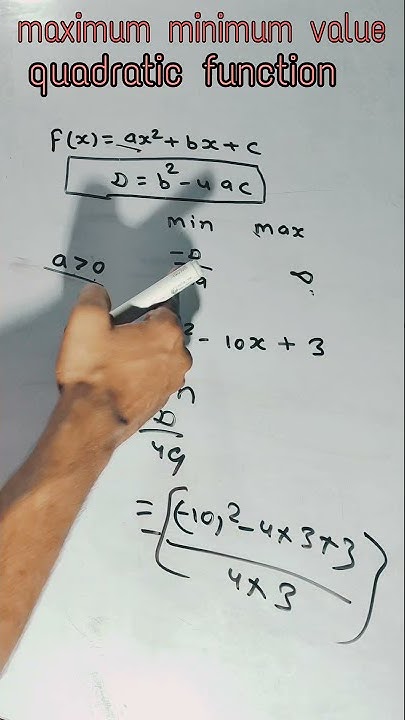 maximum minimum value
quadratic function
F(x) = ax² + bx + c
D = b² - 4ac
min max
a > 0 ∞
² - 10x + 3
n
D
4a
= - ( (-10)² - 4 × 3 × 3
4 × 3 )